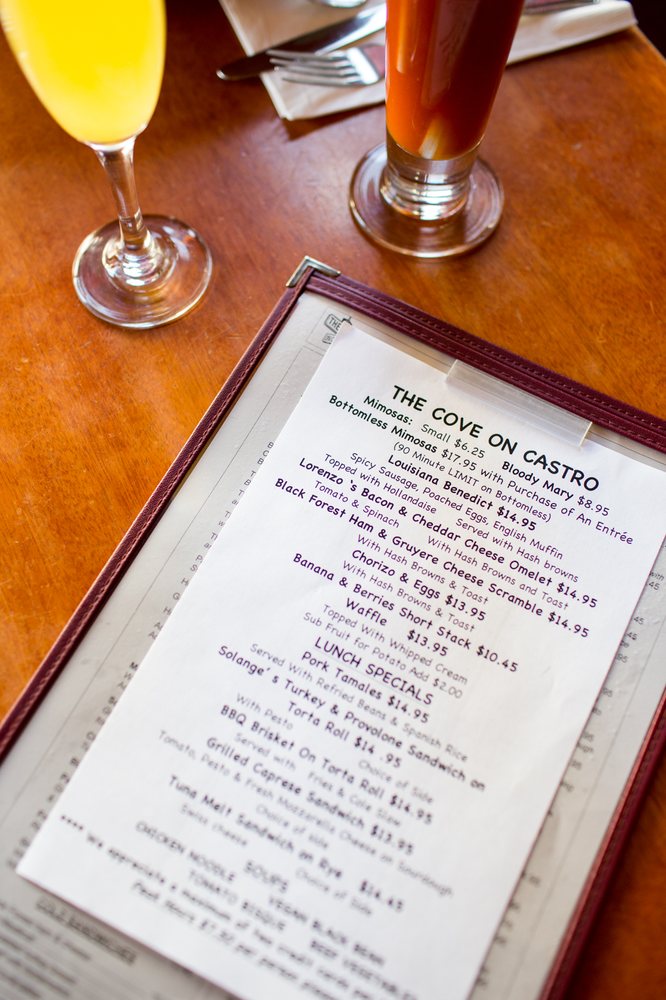 THE COVE ON CASTRO
Mimosas: Small $6.25 Bloody Mary $8.95
Bottomless Mimosas $17.95 with Purchase of An Entrée
(90 Minute LIMIT on Bottomless)
Louisiana Benedict $14.95
Spicy Sausage, Poached Eggs, English Muffin
Topped with Hollandaise Served with Hash browns
Lorenzo 's Bacon & Cheddar Cheese Omelet $14.95
Tomato & Spinach With Hash Browns and Toast
Black Forest Ham & Gruyere Cheese Scramble $14.95
With Hash Browns & Toast
Chorizo & Eggs $13.95
With Hash Browns & Toast
Banana & Berries Short Stack $10.45
Waffle $13.95
Topped With Whipped Cream
Sub Fruit for Potato Add $2.00
LUNCH SPECIALS
Pork Tamales $14.95
Served With Refried Beans & Spanish Rice
Solange's Turkey & Provolone Sandwich on
Torta Roll $14 .95
With Pesto Choice of Side
BBQ Brisket On Torta Roll $14.95
Served with Fries & Cole Slaw
Grilled Caprese Sandwich $13.95
Tomato, Pesto & Fresh Mozzarella Cheese on Sourdough
Choice of side
Tuna Melt Sandwich on Rye $14.45
Swiss cheese Choice of Side
SOUPS
CHICKEN NOODLE VEGAN BLACK BEAN
TOMATO BISQUE BEEF VEGETABLE
**** We appreciate a maximum of two credit cards per